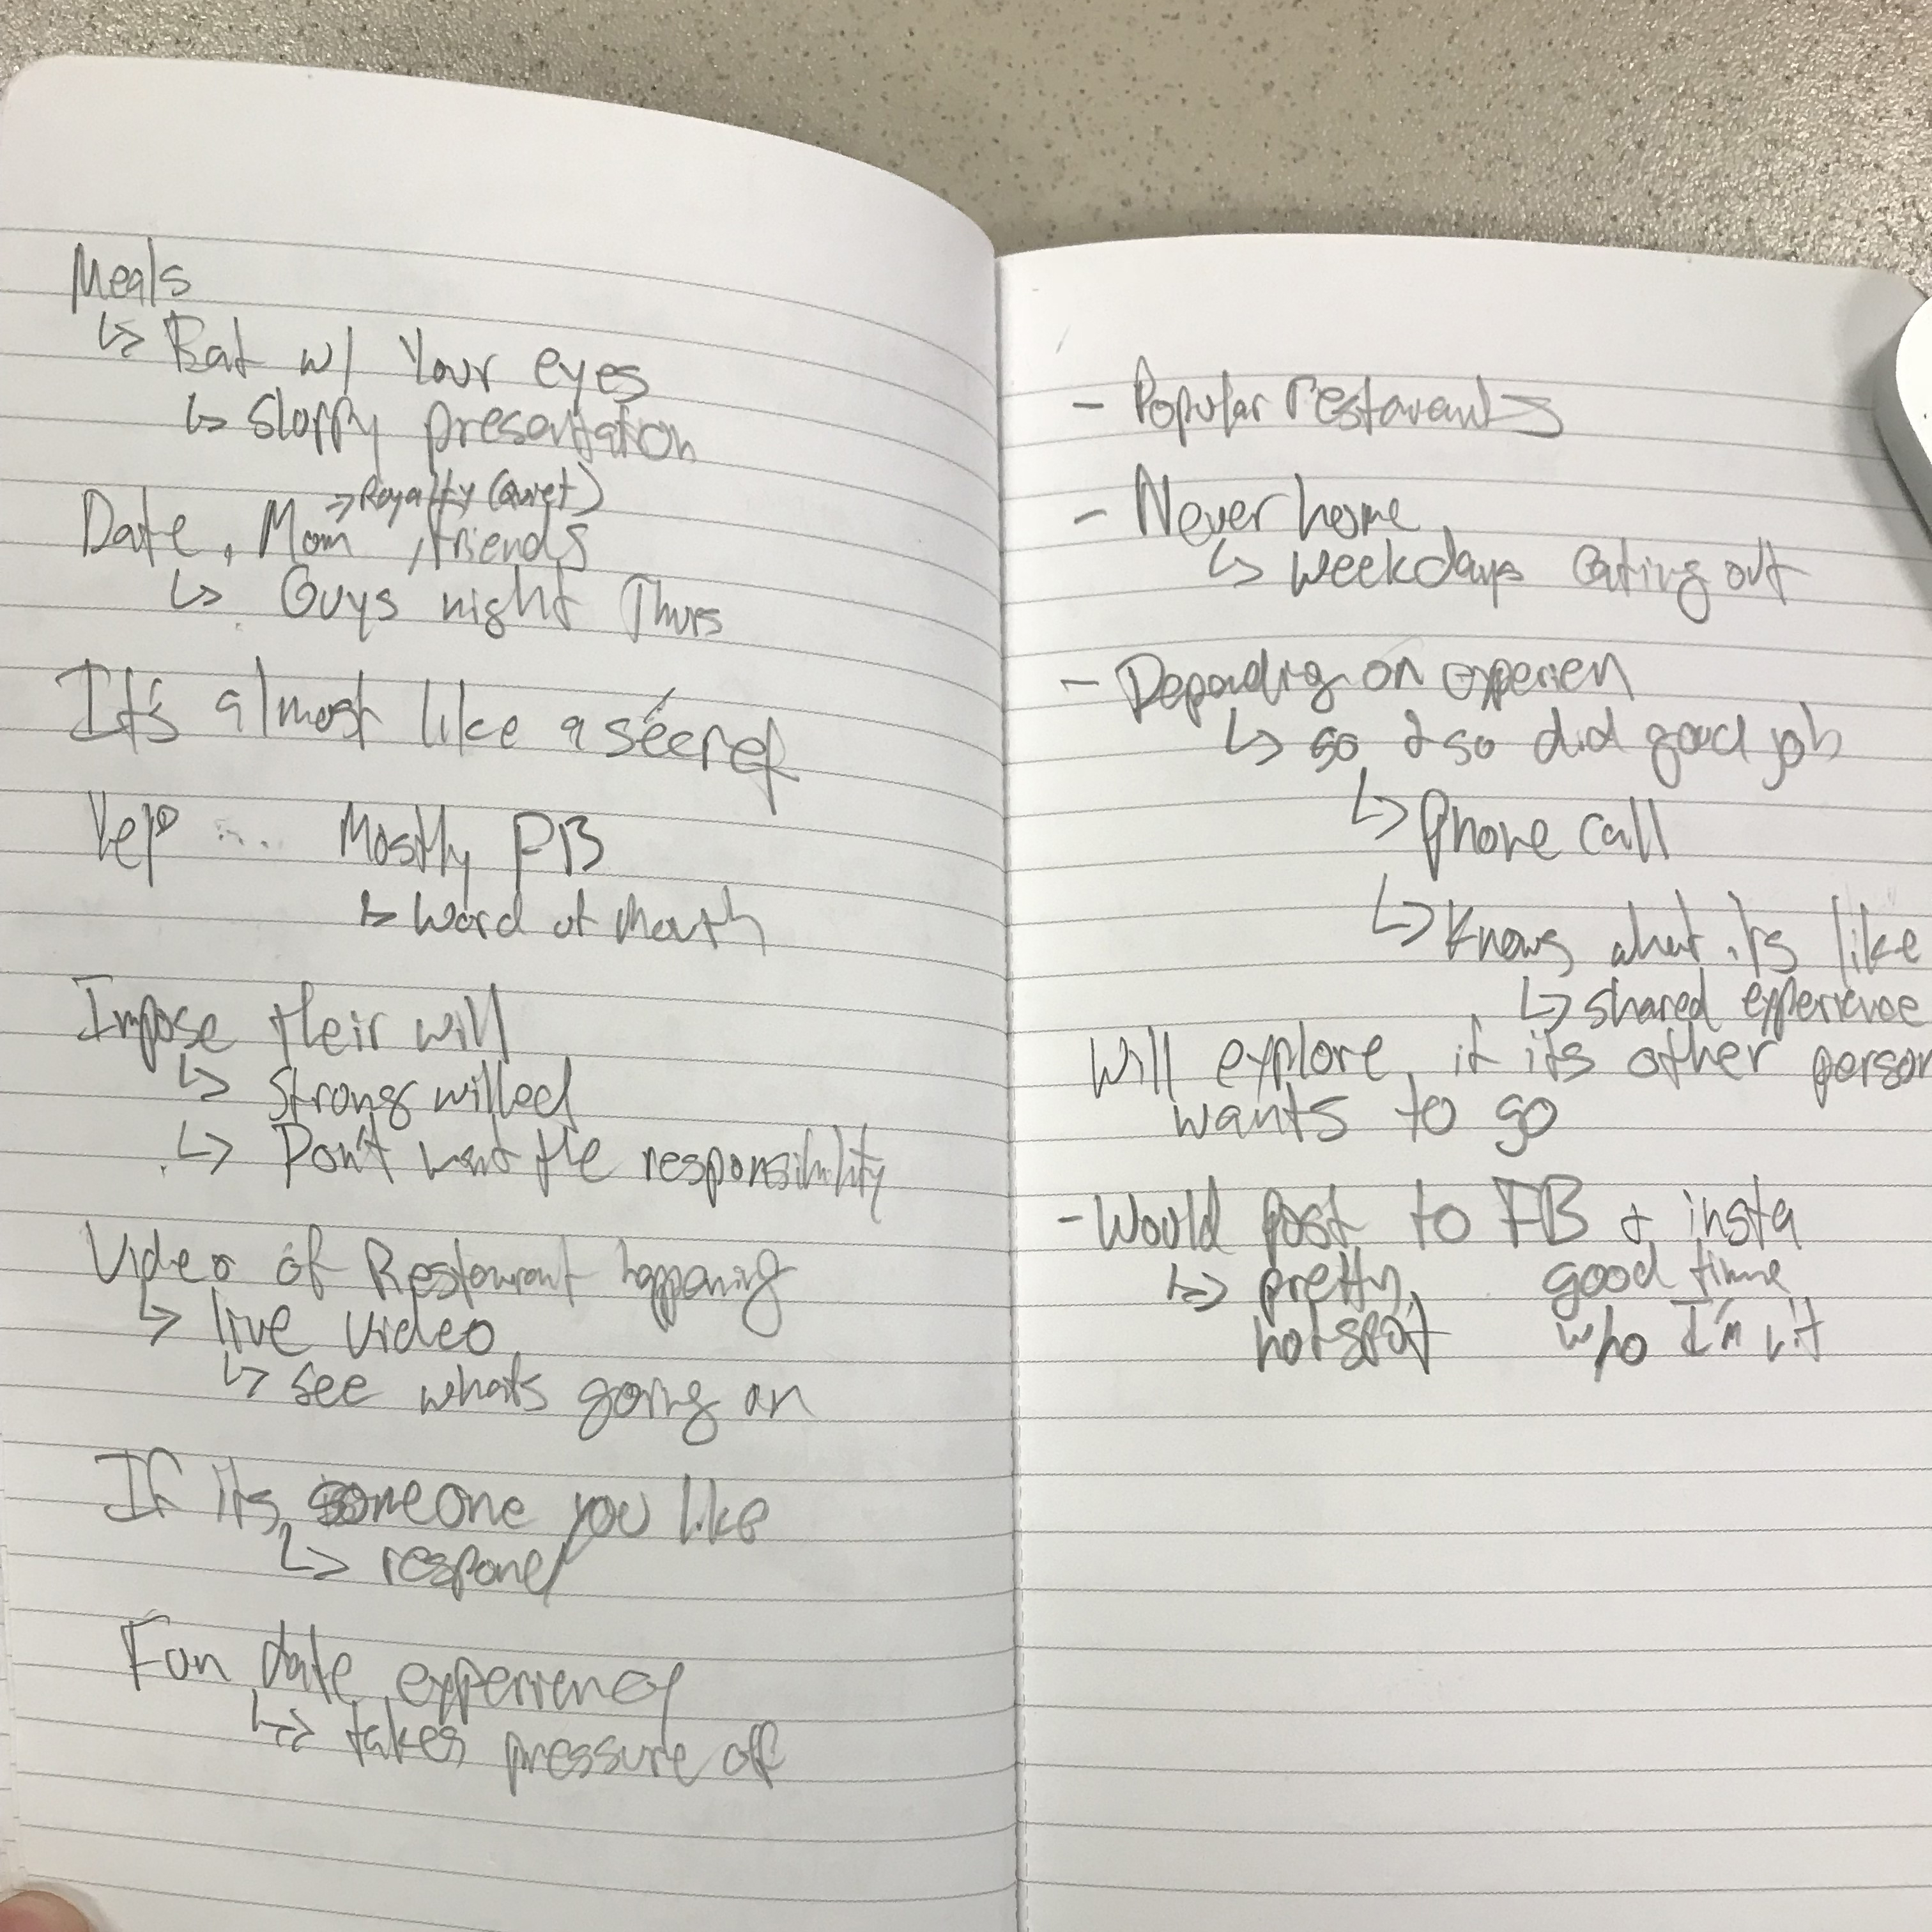 Meals
↳ Eat w/ Your eyes
↳ Sloppy presentation
→ Royalty (Quiet)
Date, Mom, friends
↳ Guys night Thurs
It's almost like a secret
Yelp .... Mostly FB
↳ Word of Mouth
Impose their will
↳ Strong willed
↳ Don't want the responsibility
Video of Restaurant happening
↳ live video
↳ see whats going on
If its someone you like
↳ respond
Fun date experience
↳ takes pressure off
- Popular restaurants
- Never home
↳ weekdays eating out
- Depending on experien
↳ so & so did good job
↳ Phone call
↳ Knows what its like
↳ shared experience
Will explore if its other person
wants to go
- Would post to FB & insta
↳ pretty, good time
hotspot who I'm